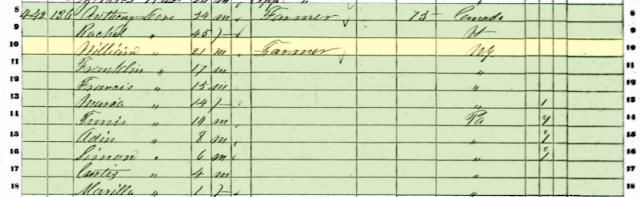 8 442 136 Anthony 54 m Farmer 75 Canada 8
9 Rachel " 45 f Vt 9
10 William " 21 m Farmer N.Y. 10
11 Franklin " 17 m " 11
12 Francis " 15 m " 12
13 Maria " 14 f " 1 13
14 Tunis " 10 m Pa 1 14
15 Adin " 8 m " 1 15
16 Simon " 6 m " 1 16
17 Curtis " 4 m " 17
18 Marilla " 1 f " 18